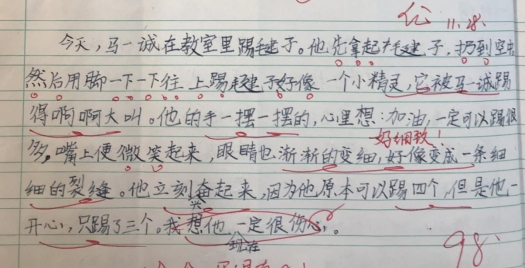 11.28.
今天，马一诚在教室里踢毽子。他先拿起毽子，扔到空中
然后用脚一下一下往上踢毽子好像一个小精灵，它被马一诚踢
得啊啊大叫。他的手一摆一摆的，心里想：加油，一定可以踢很
好细致！
多，嘴上便微笑起来，眼睛也渐渐的变细，好像变成一条细
细的裂缝。他立刻奋起来，因为他原本可以踢四个，但是他一
开心，只踢了三个。我想他一定很伤心。
现在
98